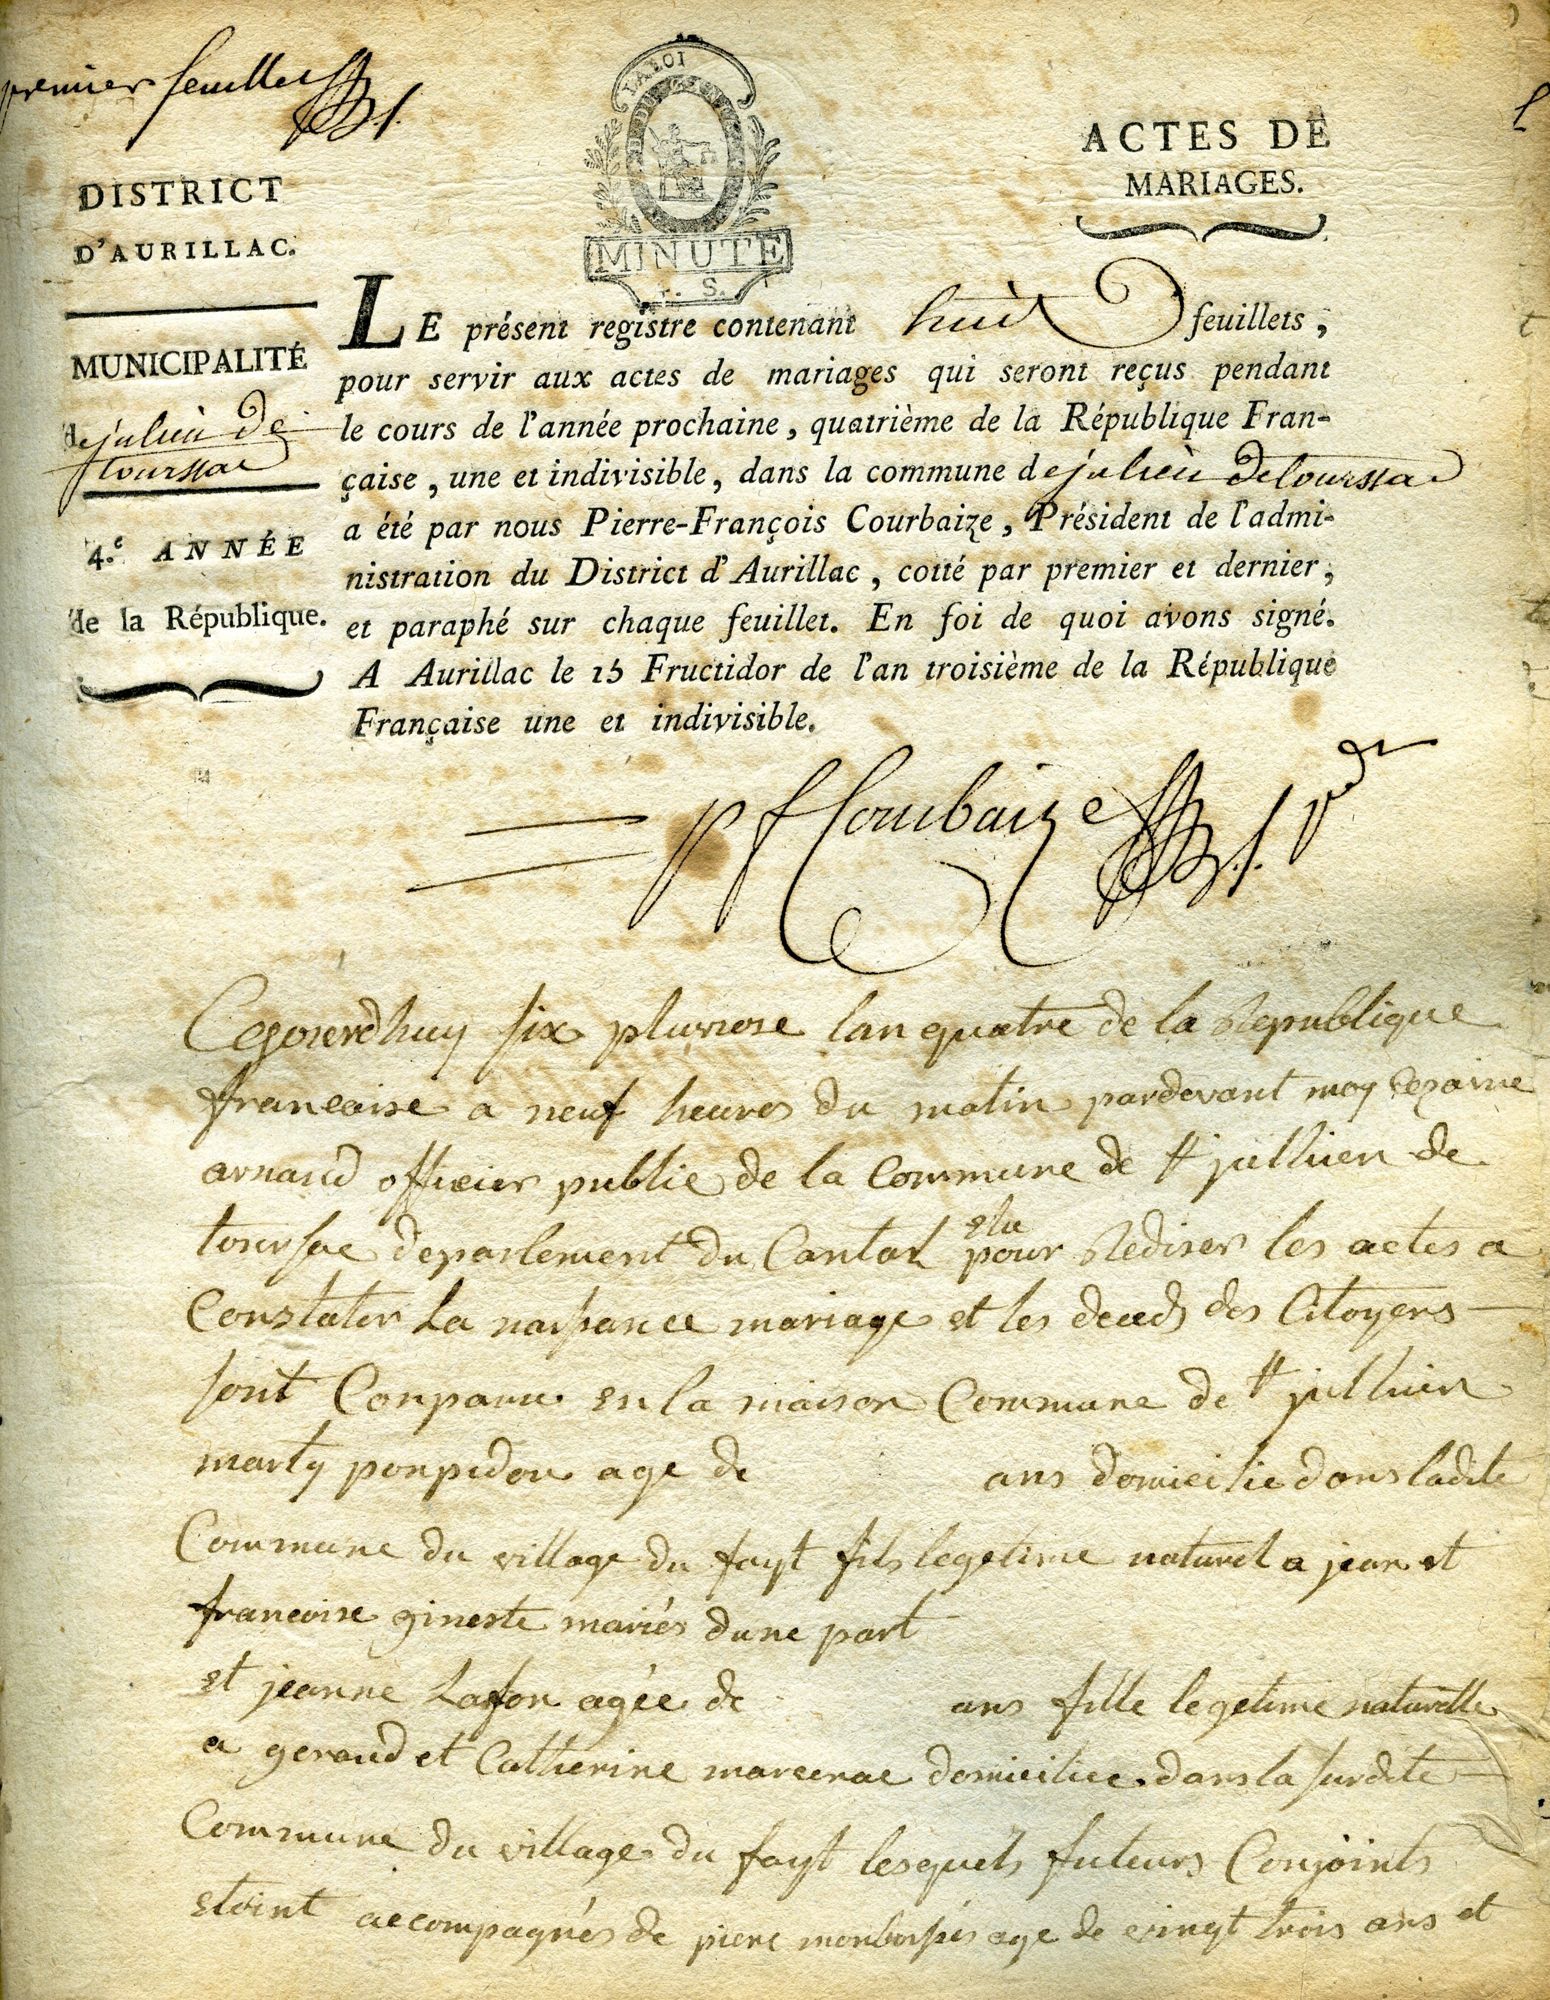 premier feuillet
LA LOI
MINUTE
S.
ACTES DE
MARIAGES.
DISTRICT
D'AURILLAC.
MUNICIPALITÉ
de julien de
tourssac
4.e ANNÉE
de la République.
LE présent registre contenant huit feuillets,
pour servir aux actes de mariages qui seront reçus pendant
le cours de l'année prochaine, quatrième de la République Fran-
çaise, une et indivisible, dans la commune de julien de tourssac
a été par nous Pierre-François Courbaize, Président de l'admi-
nistration du District d'Aurillac, cotté par premier et dernier,
et paraphé sur chaque feuillet. En foi de quoi avons signé.
A Aurillac le 15 Fructidor de l'an troisième de la République
Française une et indivisible.
pf Courbaize
Cejourdhuy six pluviose lan quatre de la Republique
francaise a neuf heures du matin pardevant moy
arnaud officier public de la Commune de st jullien de
toursac departement du Cantal elu pour Rediser les actes a
Constater La naissance mariage et les deceds des Citoyens
sont Conparu en la maison Commune de st jullien
marty ponpidou age de ans domicilie dans ladite
Commune du village du fayt fils legetime naturel a jean et
francoise gineste mariés dune part
et jeanne Lafon agée de ans fille legetime naturelle
a geraud et Catherine marcenac domiciliee dans la surdite
Commune du village du fayt lesquels futeurs Conjoints
etoint accompagnés de piere age de vingt trois ans et